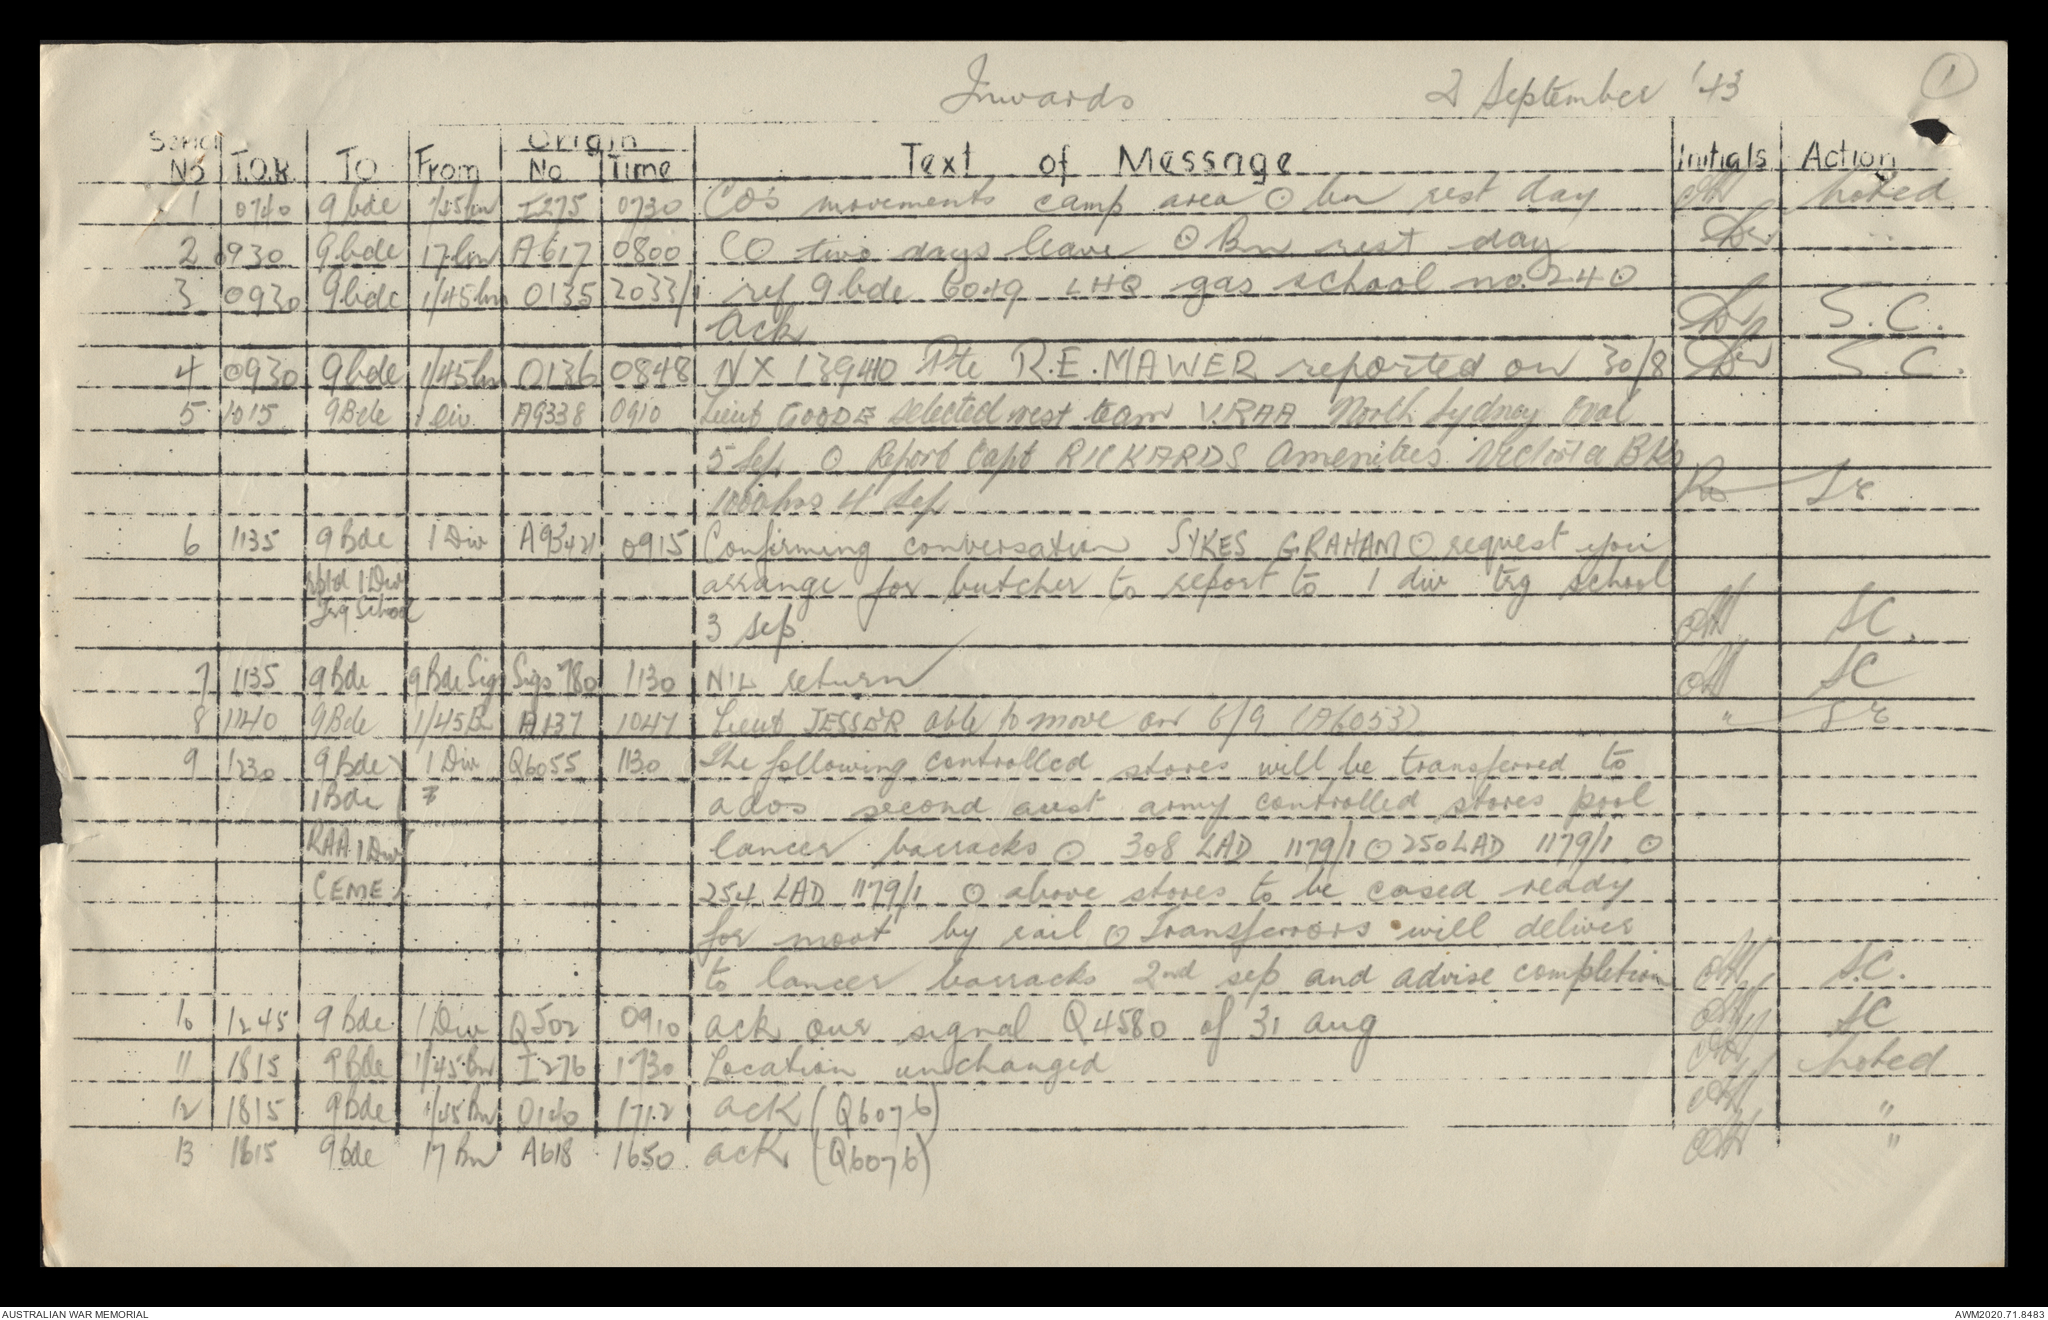 Inwards 2 September '43 1
Serial Origin
No T.O.R. TO From No Time Text of Message Initials Action
1 0740 9 bde 1/45 bn I275 0730 CO's movements camp area ⊙ bn rest day noted
2 0930 9 bde 17 bn A617 0800 CO two days leave ⊙ Bn rest day
3 0930 9 bde 1/45 bn O135 2033/1 ref 9 bde 6049 LHQ gas school no. 240
Ack S.C.
4 0930 9 bde 1/45 bn O136 0848 NX 139440 Pte R.E. MAWER reported on 30/8 S.C.
5 1015 9 Bde 1 Div A9338 0910 Lieut GOODE selected rest team V.RAA North Sydney Oval
5 Sep ⊙ Report Capt RICKARDS Amenities Victoria Bks
1000 hrs 4 Sep
6 1135 9 Bde 1 Div A9342 0915 Confirming conversation SYKES GRAHAM ⊙ request you
rptd 1 Div arrange for butcher to report to 1 div trg school
Trg School
3 sep SC.
7 1135 9 Bde 9 Bde Sigs Sigs 780 1130 NIL return SC
8 1140 9 Bde 1/45 Bn A137 1047 Lieut JESSER able to move on 6/9 (A6053) "
9 1230 9 Bde 1 Div Q6055 1130 The following controlled stores will be transferred to
1 Bde ados second aust army controlled stores pool
RAA 1 Div lancer barracks ⊙ 308 LAD 1179/1 ⊙ 250 LAD 1179/1 ⊙
CEME 254 LAD 1179/1 ⊙ above stores to be cased ready
for movt by rail ⊙ Transferrors will deliver
to lancer barracks 2nd sep and advise completion S.C.
10 1245 9 Bde 1 Div Q502 0910 ack our signal Q4580 of 31 aug SC
11 1815 9 Bde 1/45 Bn I276 1730 Location unchanged noted
12 1815 9 Bde 1/45 Bn O140 1712 ack (Q6076) "
13 1815 9 bde 17 Bn A618 1650 ack (Q6076) "
AUSTRALIAN WAR MEMORIAL AWM2020.71.8483